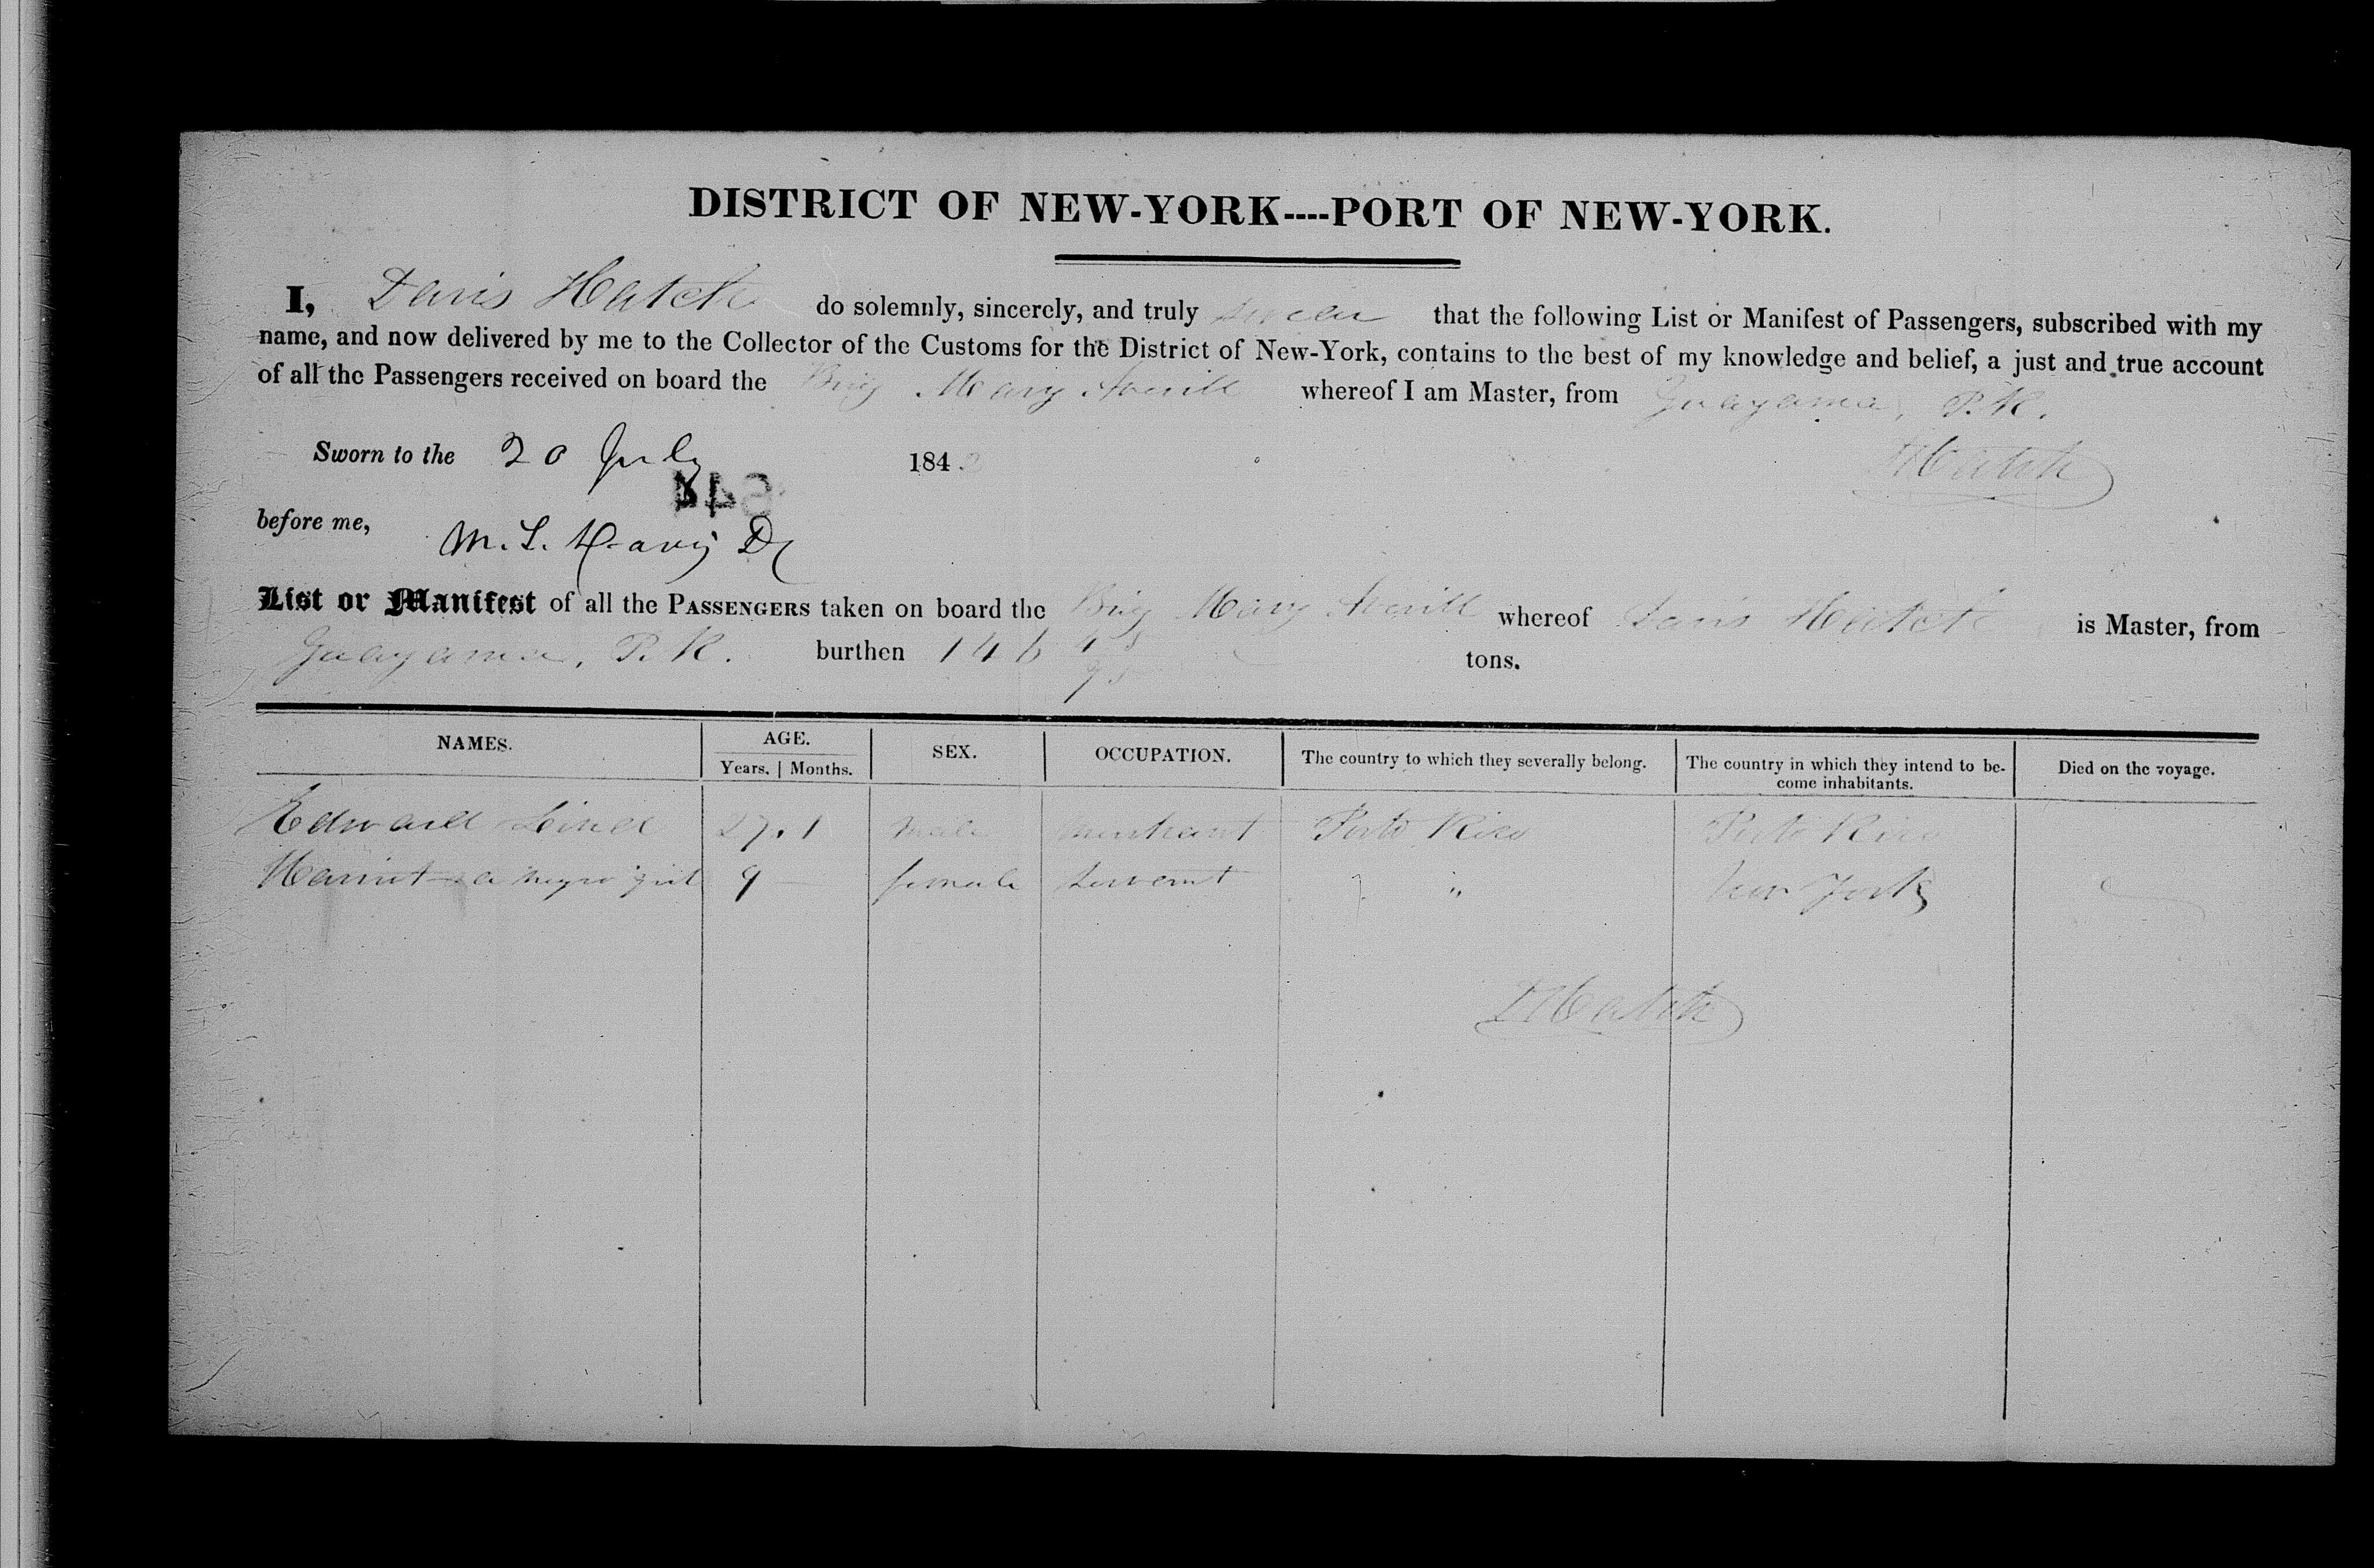 DISTRICT OF NEW-YORK----PORT OF NEW-YORK.
I, Davis Hatch do solemnly, sincerely, and truly swear that the following List or Manifest of Passengers, subscribed with my
name, and now delivered by me to the Collector of the Customs for the District of New-York, contains to the best of my knowledge and belief, a just and true account
of all the Passengers received on board the Brig Mary Averill whereof I am Master, from Guayama, P.R.
Sworn to the 20 July 184
D Hatch
before me,
List or Manifest of all the PASSENGERS taken on board the Brig Mary Averill whereof Davis Hatch is Master, from
Guayama, P.R. burthen 146 tons.
NAMES. AGE. SEX. OCCUPATION. The country to which they severally belong. The country in which they intend to be- Died on the voyage.
Years. | Months. come inhabitants.
Edward Lind 27.1 male merchant Porto Rico Porto Rico
Harriet a negro girl 9 female servant " New York
D Hatch